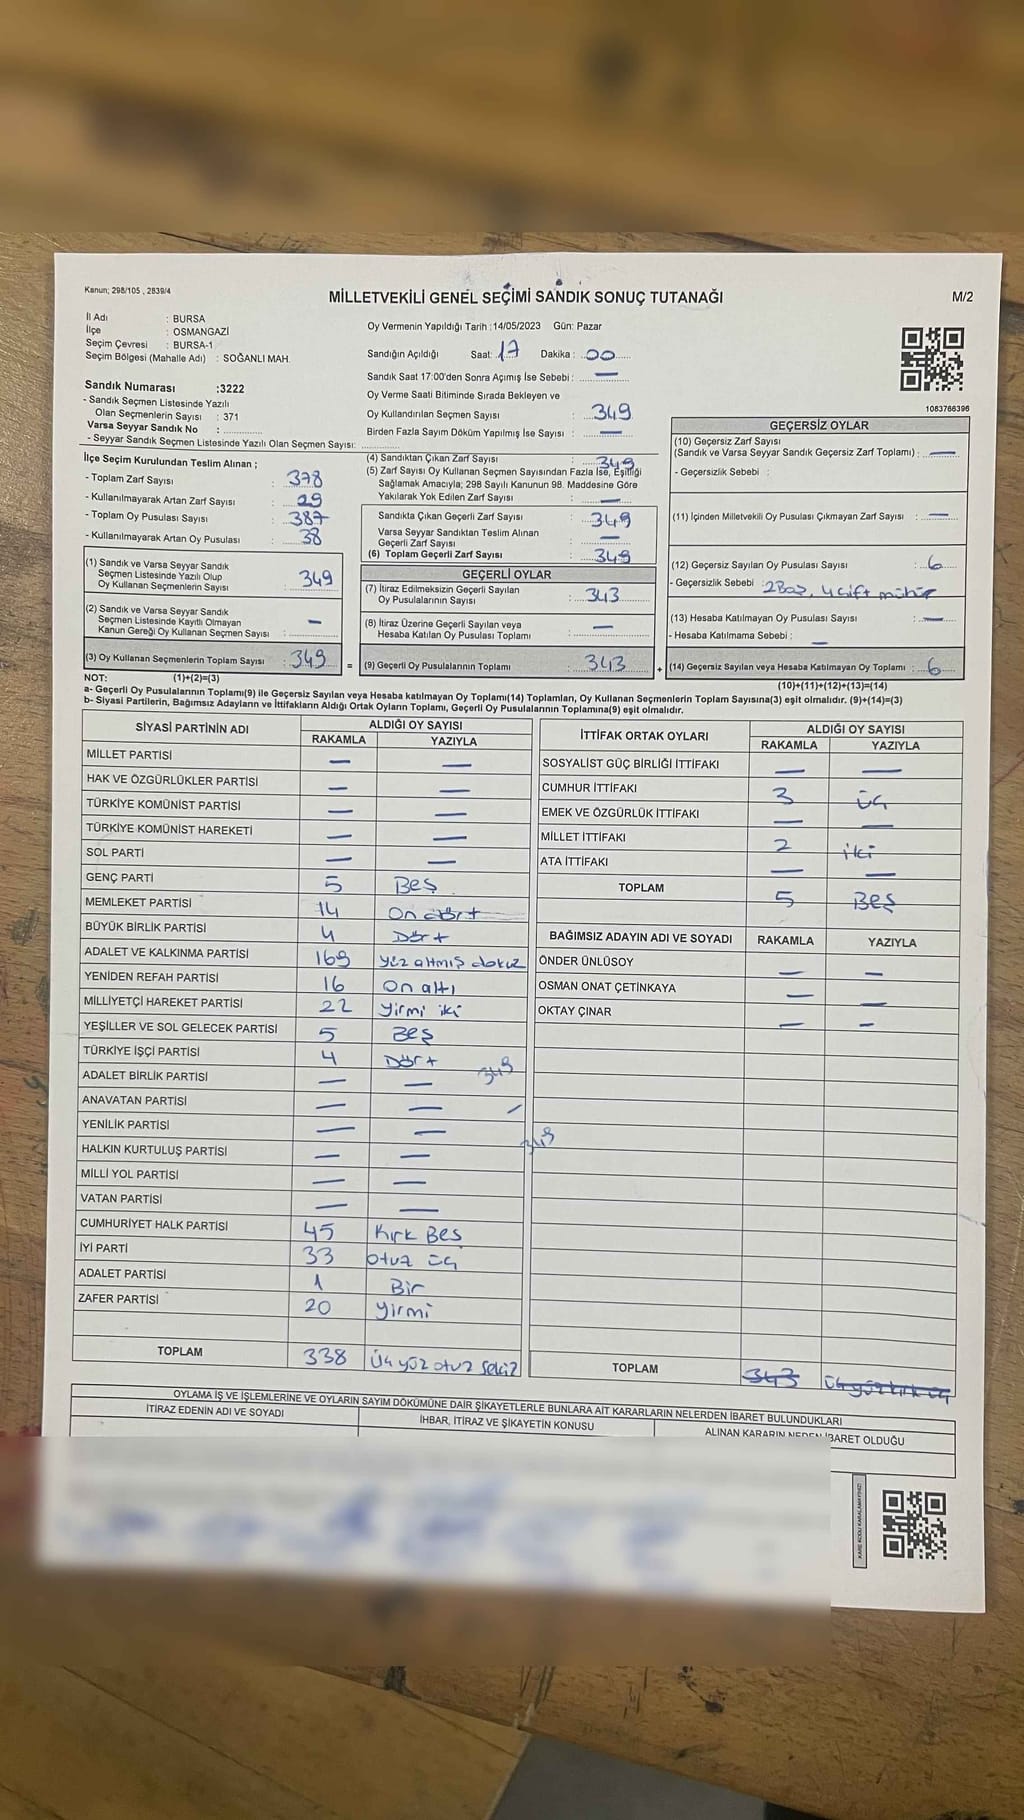 Kanun; 298/105 , 2839/4
MİLLETVEKİLİ GENEL SEÇİMİ SANDIK SONUÇ TUTANAĞI
M/2
İl Adı : BURSA
İlçe : OSMANGAZİ
Seçim Çevresi : BURSA-1
Seçim Bölgesi (Mahalle Adı) : SOĞANLI MAH.
Sandık Numarası :3222
- Sandık Seçmen Listesinde Yazılı
Olan Seçmenlerin Sayısı : 371
Varsa Seyyar Sandık No :
- Seyyar Sandık Seçmen Listesinde Yazılı Olan Seçmen Sayısı:
Oy Vermenin Yapıldığı Tarih :14/05/2023 Gün: Pazar
Sandığın Açıldığı Saat: 17 Dakika : 00
Sandık Saat 17:00'den Sonra Açımış İse Sebebi : —
Oy Verme Saati Bitiminde Sırada Bekleyen ve
Oy Kullandırılan Seçmen Sayısı : 349
Birden Fazla Sayım Döküm Yapılmış İse Sayısı : —
1083766396
İlçe Seçim Kurulundan Teslim Alınan ;
- Toplam Zarf Sayısı : 378
- Kullanılmayarak Artan Zarf Sayısı : 29
- Toplam Oy Pusulası Sayısı : 387
- Kullanılmayarak Artan Oy Pusulası : 38
(1) Sandık ve Varsa Seyyar Sandık
Seçmen Listesinde Yazılı Olup
Oy Kullanan Seçmenlerin Sayısı : 349
(2) Sandık ve Varsa Seyyar Sandık
Seçmen Listesinde Kayıtlı Olmayan
Kanun Gereği Oy Kullanan Seçmen Sayısı : —
(3) Oy Kullanan Seçmenlerin Toplam Sayısı : 349 =
(4) Sandıktan Çıkan Zarf Sayısı : 349
(5) Zarf Sayısı Oy Kullanan Seçmen Sayısından Fazla İse, Eşitliği
Sağlamak Amacıyla; 298 Sayılı Kanunun 98. Maddesine Göre
Yakılarak Yok Edilen Zarf Sayısı : —
Sandıkta Çıkan Geçerli Zarf Sayısı : 349
Varsa Seyyar Sandıktan Teslim Alınan
Geçerli Zarf Sayısı : —
(6) Toplam Geçerli Zarf Sayısı : 349
GEÇERLİ OYLAR
(7) İtiraz Edilmeksizin Geçerli Sayılan
Oy Pusulalarının Sayısı : 343
(8) İtiraz Üzerine Geçerli Sayılan veya
Hesaba Katılan Oy Pusulası Toplamı : —
(9) Geçerli Oy Pusulalarının Toplamı : 343 +
GEÇERSİZ OYLAR
(10) Geçersiz Zarf Sayısı
(Sandık ve Varsa Seyyar Sandık Geçersiz Zarf Toplamı) : —
- Geçersizlik Sebebi :
(11) İçinden Milletvekili Oy Pusulası Çıkmayan Zarf Sayısı : —
(12) Geçersiz Sayılan Oy Pusulası Sayısı : 6
- Geçersizlik Sebebi : 2 Boş, 4 çift mühür
(13) Hesaba Katılmayan Oy Pusulası Sayısı : —
- Hesaba Katılmama Sebebi : —
(14) Geçersiz Sayılan veya Hesaba Katılmayan Oy Toplamı : 6
NOT: (1)+(2)=(3)
(10)+(11)+(12)+(13)=(14)
a- Geçerli Oy Pusulalarının Toplamı(9) ile Geçersiz Sayılan veya Hesaba katılmayan Oy Toplamı(14) Toplamları, Oy Kullanan Seçmenlerin Toplam Sayısına(3) eşit olmalıdır. (9)+(14)=(3)
b- Siyasi Partilerin, Bağımsız Adayların ve İttifakların Aldığı Ortak Oyların Toplamı, Geçerli Oy Pusulalarının Toplamına(9) eşit olmalıdır.
SİYASİ PARTİNİN ADI ALDIĞI OY SAYISI
RAKAMLA YAZIYLA
MİLLET PARTİSİ — —
HAK VE ÖZGÜRLÜKLER PARTİSİ — —
TÜRKİYE KOMÜNİST PARTİSİ — —
TÜRKİYE KOMÜNİST HAREKETİ — —
SOL PARTİ — —
GENÇ PARTİ 5 Beş
MEMLEKET PARTİSİ 14 On dört
BÜYÜK BİRLİK PARTİSİ 4 Dört
ADALET VE KALKINMA PARTİSİ 169 yüz altmış dokuz
YENİDEN REFAH PARTİSİ 16 on altı
MİLLİYETÇİ HAREKET PARTİSİ 22 yirmi iki
YEŞİLLER VE SOL GELECEK PARTİSİ 5 Beş
TÜRKİYE İŞÇİ PARTİSİ 4 Dört 349
ADALET BİRLİK PARTİSİ — —
ANAVATAN PARTİSİ — —
YENİLİK PARTİSİ — — 349
HALKIN KURTULUŞ PARTİSİ — —
MİLLİ YOL PARTİSİ — —
VATAN PARTİSİ — —
CUMHURİYET HALK PARTİSİ 45 Kırk Beş
İYİ PARTİ 33 otuz üç
ADALET PARTİSİ 1 Bir
ZAFER PARTİSİ 20 yirmi
TOPLAM 338 üç yüz otuz sekiz
İTTİFAK ORTAK OYLARI ALDIĞI OY SAYISI
RAKAMLA YAZIYLA
SOSYALİST GÜÇ BİRLİĞİ İTTİFAKI — —
CUMHUR İTTİFAKI 3 üç
EMEK VE ÖZGÜRLÜK İTTİFAKI — —
MİLLET İTTİFAKI 2 iki
ATA İTTİFAKI — —
TOPLAM 5 Beş
BAĞIMSIZ ADAYIN ADI VE SOYADI RAKAMLA YAZIYLA
ÖNDER ÜNLÜSOY — —
OSMAN ONAT ÇETİNKAYA — —
OKTAY ÇINAR — —
TOPLAM 343 üç yüz kırk üç
OYLAMA İŞ VE İŞLEMLERİNE VE OYLARIN SAYIM DÖKÜMÜNE DAİR ŞİKAYETLERLE BUNLARA AİT KARARLARIN NELERDEN İBARET BULUNDUKLARI
İTİRAZ EDENİN ADI VE SOYADI İHBAR, İTİRAZ VE ŞİKAYETİN KONUSU ALINAN KARARIN NEDEN İBARET OLDUĞU